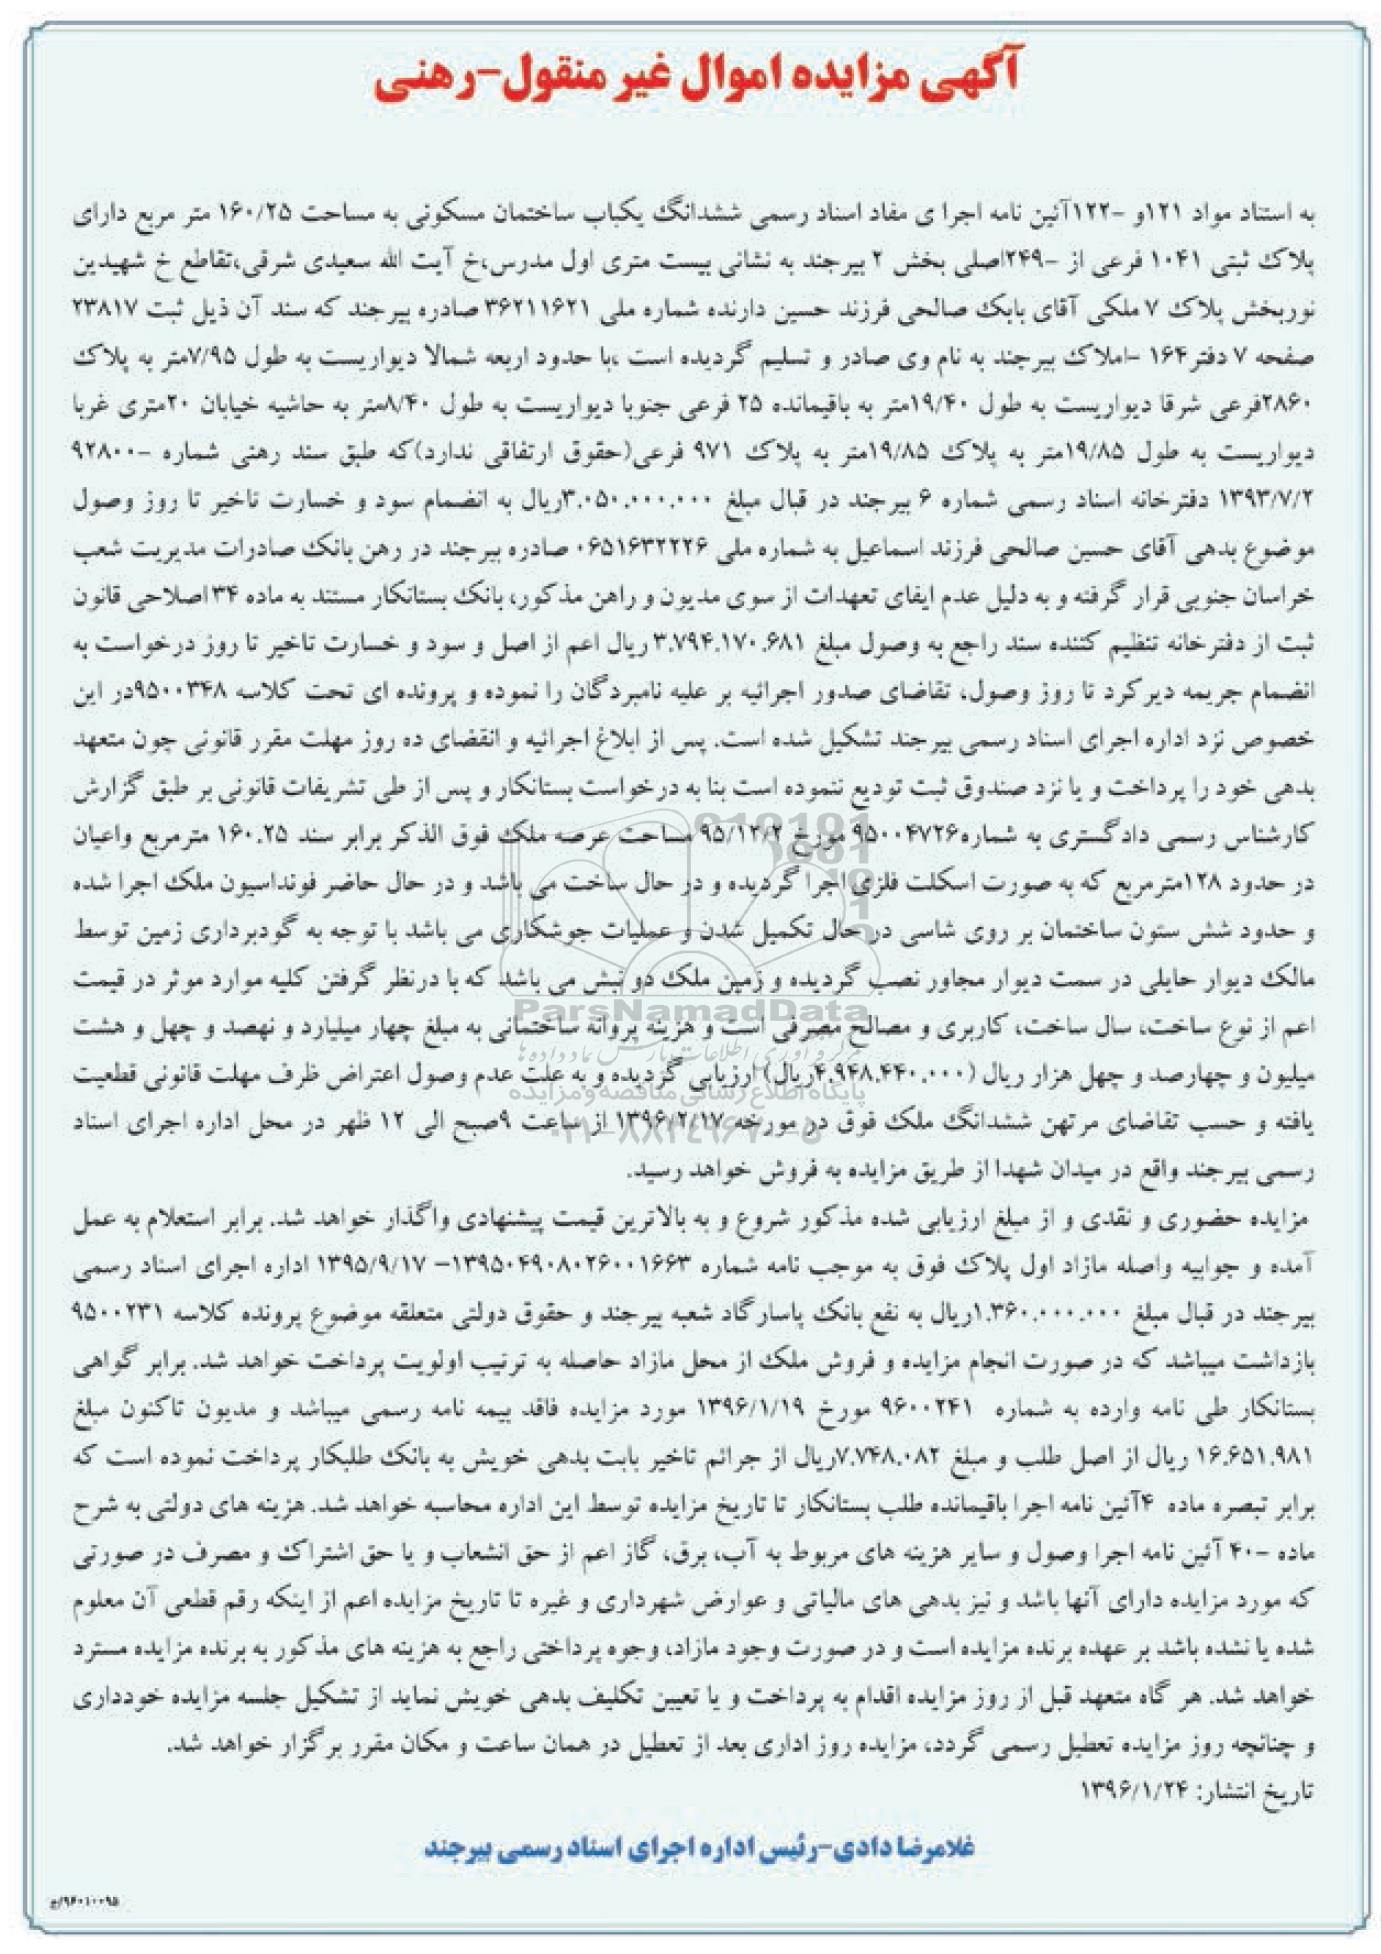 آگهی مزایده اموال غیر منقول-رهنی
به استناد مواد ۱۲۱و -۱۲۲آئین نامه اجرا ی مفاد اسناد رسمی ششدانگ یکباب ساختمان مسکونی به مساحت ۱۶۰/۲۵ متر مربع دارای
پلاک ثبتی ۱۰۴۱ فرعی از -۲۴۹اصلی بخش ۲ بیرجند به نشانی بیست متری اول مدرس،خ آیت الله سعیدی شرقی،تقاطع خ شهیدین
نوربخش پلاک ۷ ملکی آقای بابک صالحی فرزند حسین دارنده شماره ملی ۳۶۲۱۱۶۲۱ صادره بیرجند که سند آن ذیل ثبت ۲۳۸۱۷
صفحه ۷ دفتر۱۶۴ -املاک بیرجند به نام وی صادر و تسلیم گردیده است ،با حدود اربعه شمالا دیواریست به طول ۷/۹۵متر به پلاک
۲۸۶۰فرعی شرقا دیواریست به طول ۱۹/۴۰متر به باقیمانده ۲۵ فرعی جنوبا دیواریست به طول ۸/۴۰متر به حاشیه خیابان ۲۰متری غربا
دیواریست به طول ۱۹/۸۵متر به پلاک ۱۹/۸۵متر به پلاک ۹۷۱ فرعی(حقوق ارتفاقی ندارد)که طبق سند رهنی شماره -۹۲۸۰۰
۱۳۹۳/۷/۲ دفترخانه اسناد رسمی شماره ۶ بیرجند در قبال مبلغ ۳.۰۵۰.۰۰۰.۰۰۰ریال به انضمام سود و خسارت تاخیر تا روز وصول
موضوع بدهی آقای حسین صالحی فرزند اسماعیل به شماره ملی ۰۶۵۱۶۳۲۲۲۶ صادره بیرجند در رهن بانک صادرات مدیریت شعب
خراسان جنوبی قرار گرفته و به دلیل عدم ایفای تعهدات از سوی مدیون و راهن مذکور، بانک بستانکار مستند به ماده ۳۴ اصلاحی قانون
ثبت از دفترخانه تنظیم کننده سند راجع به وصول مبلغ ۳.۷۹۴.۱۷۰.۶۸۱ ریال اعم از اصل و سود و خسارت تاخیر تا روز درخواست به
انضمام جریمه دیرکرد تا روز وصول، تقاضای صدور اجرائیه بر علیه نامبردگان را نموده و پرونده ای تحت کلاسه ۹۵۰۰۳۴۸در این
خصوص نزد اداره اجرای اسناد رسمی بیرجند تشکیل شده است. پس از ابلاغ اجرائیه و انقضای ده روز مهلت مقرر قانونی چون متعهد
بدهی خود را پرداخت و یا نزد صندوق ثبت تودیع ننموده است بنا به درخواست بستانکار و پس از طی تشریفات قانونی بر طبق گزارش
کارشناس رسمی دادگستری به شماره۹۵۰۰۴۷۲۶ مورخ ۹۵/۱۲/۲ مساحت عرصه ملک فوق الذکر برابر سند ۱۶۰.۲۵ مترمربع واعیان
در حدود ۱۲۸مترمربع که به صورت اسکلت فلزی اجرا گردیده و در حال ساخت می باشد و در حال حاضر فونداسیون ملک اجرا شده
و حدود شش ستون ساختمان بر روی شاسی در حال تکمیل شدن و عملیات جوشکاری می باشد با توجه به گودبرداری زمین توسط
مالک دیوار حایلی در سمت دیوار مجاور نصب گردیده و زمین ملک دو نبش می باشد که با درنظر گرفتن کلیه موارد موثر در قیمت
ParsNamadData
اعم از نوع ساخت، سال ساخت، کاربری و مصالح مصرفی است و هزینه پروانه ساختمانی به مبلغ چهار میلیارد و نهصد و چهل و هشت
میلیون و چهارصد و چهل هزار ریال (۴.۹۴۸.۴۴۰.۰۰۰ریال) ارزیابی گردیده و به علت عدم وصول اعتراض ظرف مهلت قانونی قطعیت
پایگاه اطلاع رسانی مناقصه و مزایده
یافته و حسب تقاضای مرتهن ششدانگ ملک فوق در مورخه ۱۳۹۶/۲/۱۷ از ساعت ۹صبح الی ۱۲ ظهر در محل اداره اجرای اسناد
رسمی بیرجند واقع در میدان شهدا از طریق مزایده به فروش خواهد رسید.
مزایده حضوری و نقدی و از مبلغ ارزیابی شده مذکور شروع و به بالاترین قیمت پیشنهادی واگذار خواهد شد. برابر استعلام به عمل
آمده و جوابیه واصله مازاد اول پلاک فوق به موجب نامه شماره ۱۳۹۵۰۴۹۰۸۰۲۶۰۰۱۶۶۳- ۱۳۹۵/۹/۱۷ اداره اجرای اسناد رسمی
بیرجند در قبال مبلغ ۱.۳۶۰.۰۰۰.۰۰۰ریال به نفع بانک پاسارگاد شعبه بیرجند و حقوق دولتی متعلقه موضوع پرونده کلاسه ۹۵۰۰۲۳۱
بازداشت میباشد که در صورت انجام مزایده و فروش ملک از محل مازاد حاصله به ترتیب اولویت پرداخت خواهد شد. برابر گواهی
بستانکار طی نامه وارده به شماره ۹۶۰۰۲۴۱ مورخ ۱۳۹۶/۱/۱۹ مورد مزایده فاقد بیمه نامه رسمی میباشد و مدیون تاکنون مبلغ
۱۶.۶۵۱.۹۸۱ ریال از اصل طلب و مبلغ ۷.۷۴۸.۰۸۲ریال از جرائم تاخیر بابت بدهی خویش به بانک طلبکار پرداخت نموده است که
برابر تبصره ماده ۴آئین نامه اجرا باقیمانده طلب بستانکار تا تاریخ مزایده توسط این اداره محاسبه خواهد شد. هزینه های دولتی به شرح
ماده -۴۰ آئین نامه اجرا وصول و سایر هزینه های مربوط به آب، برق، گاز اعم از حق انشعاب و یا حق اشتراک و مصرف در صورتی
که مورد مزایده دارای آنها باشد و نیز بدهی های مالیاتی و عوارض شهرداری و غیره تا تاریخ مزایده اعم از اینکه رقم قطعی آن معلوم
شده یا نشده باشد بر عهده برنده مزایده است و در صورت وجود مازاد، وجوه پرداختی راجع به هزینه های مذکور به برنده مزایده مسترد
خواهد شد. هر گاه متعهد قبل از روز مزایده اقدام به پرداخت و یا تعیین تکلیف بدهی خویش نماید از تشکیل جلسه مزایده خودداری
و چنانچه روز مزایده تعطیل رسمی گردد، مزایده روز اداری بعد از تعطیل در همان ساعت و مکان مقرر برگزار خواهد شد.
تاریخ انتشار: ۱۳۹۶/۱/۲۴
غلامرضا دادی-رئیس اداره اجرای اسناد رسمی بیرجند
۹۶۰۱۰۰۹۵/ح